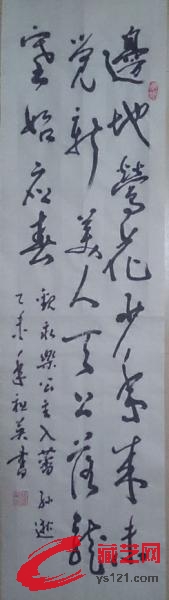 邊地鶯花少年來未
覺新美人天上落龍
塞始應春
觀永樂公主入蕃 孫逖
乙未年祖英書
藏艺网
ys121.com